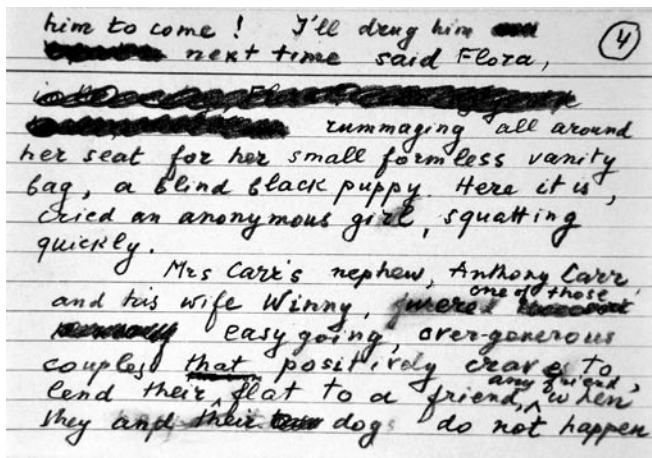 him to come! I'll drug him
next time said Flora,
4
rummaging all around
her seat for her small formless vanity
bag, a blind black puppy. Here it is,
cried an anonymous girl, squatting
quickly.
Mrs Carr's nephew, Anthony Carr
and his wife Winny, were one of those
easygoing, over-generous
couples that positively crave to
lend their flat to a friend, any friend, when
they and their dog do not happen